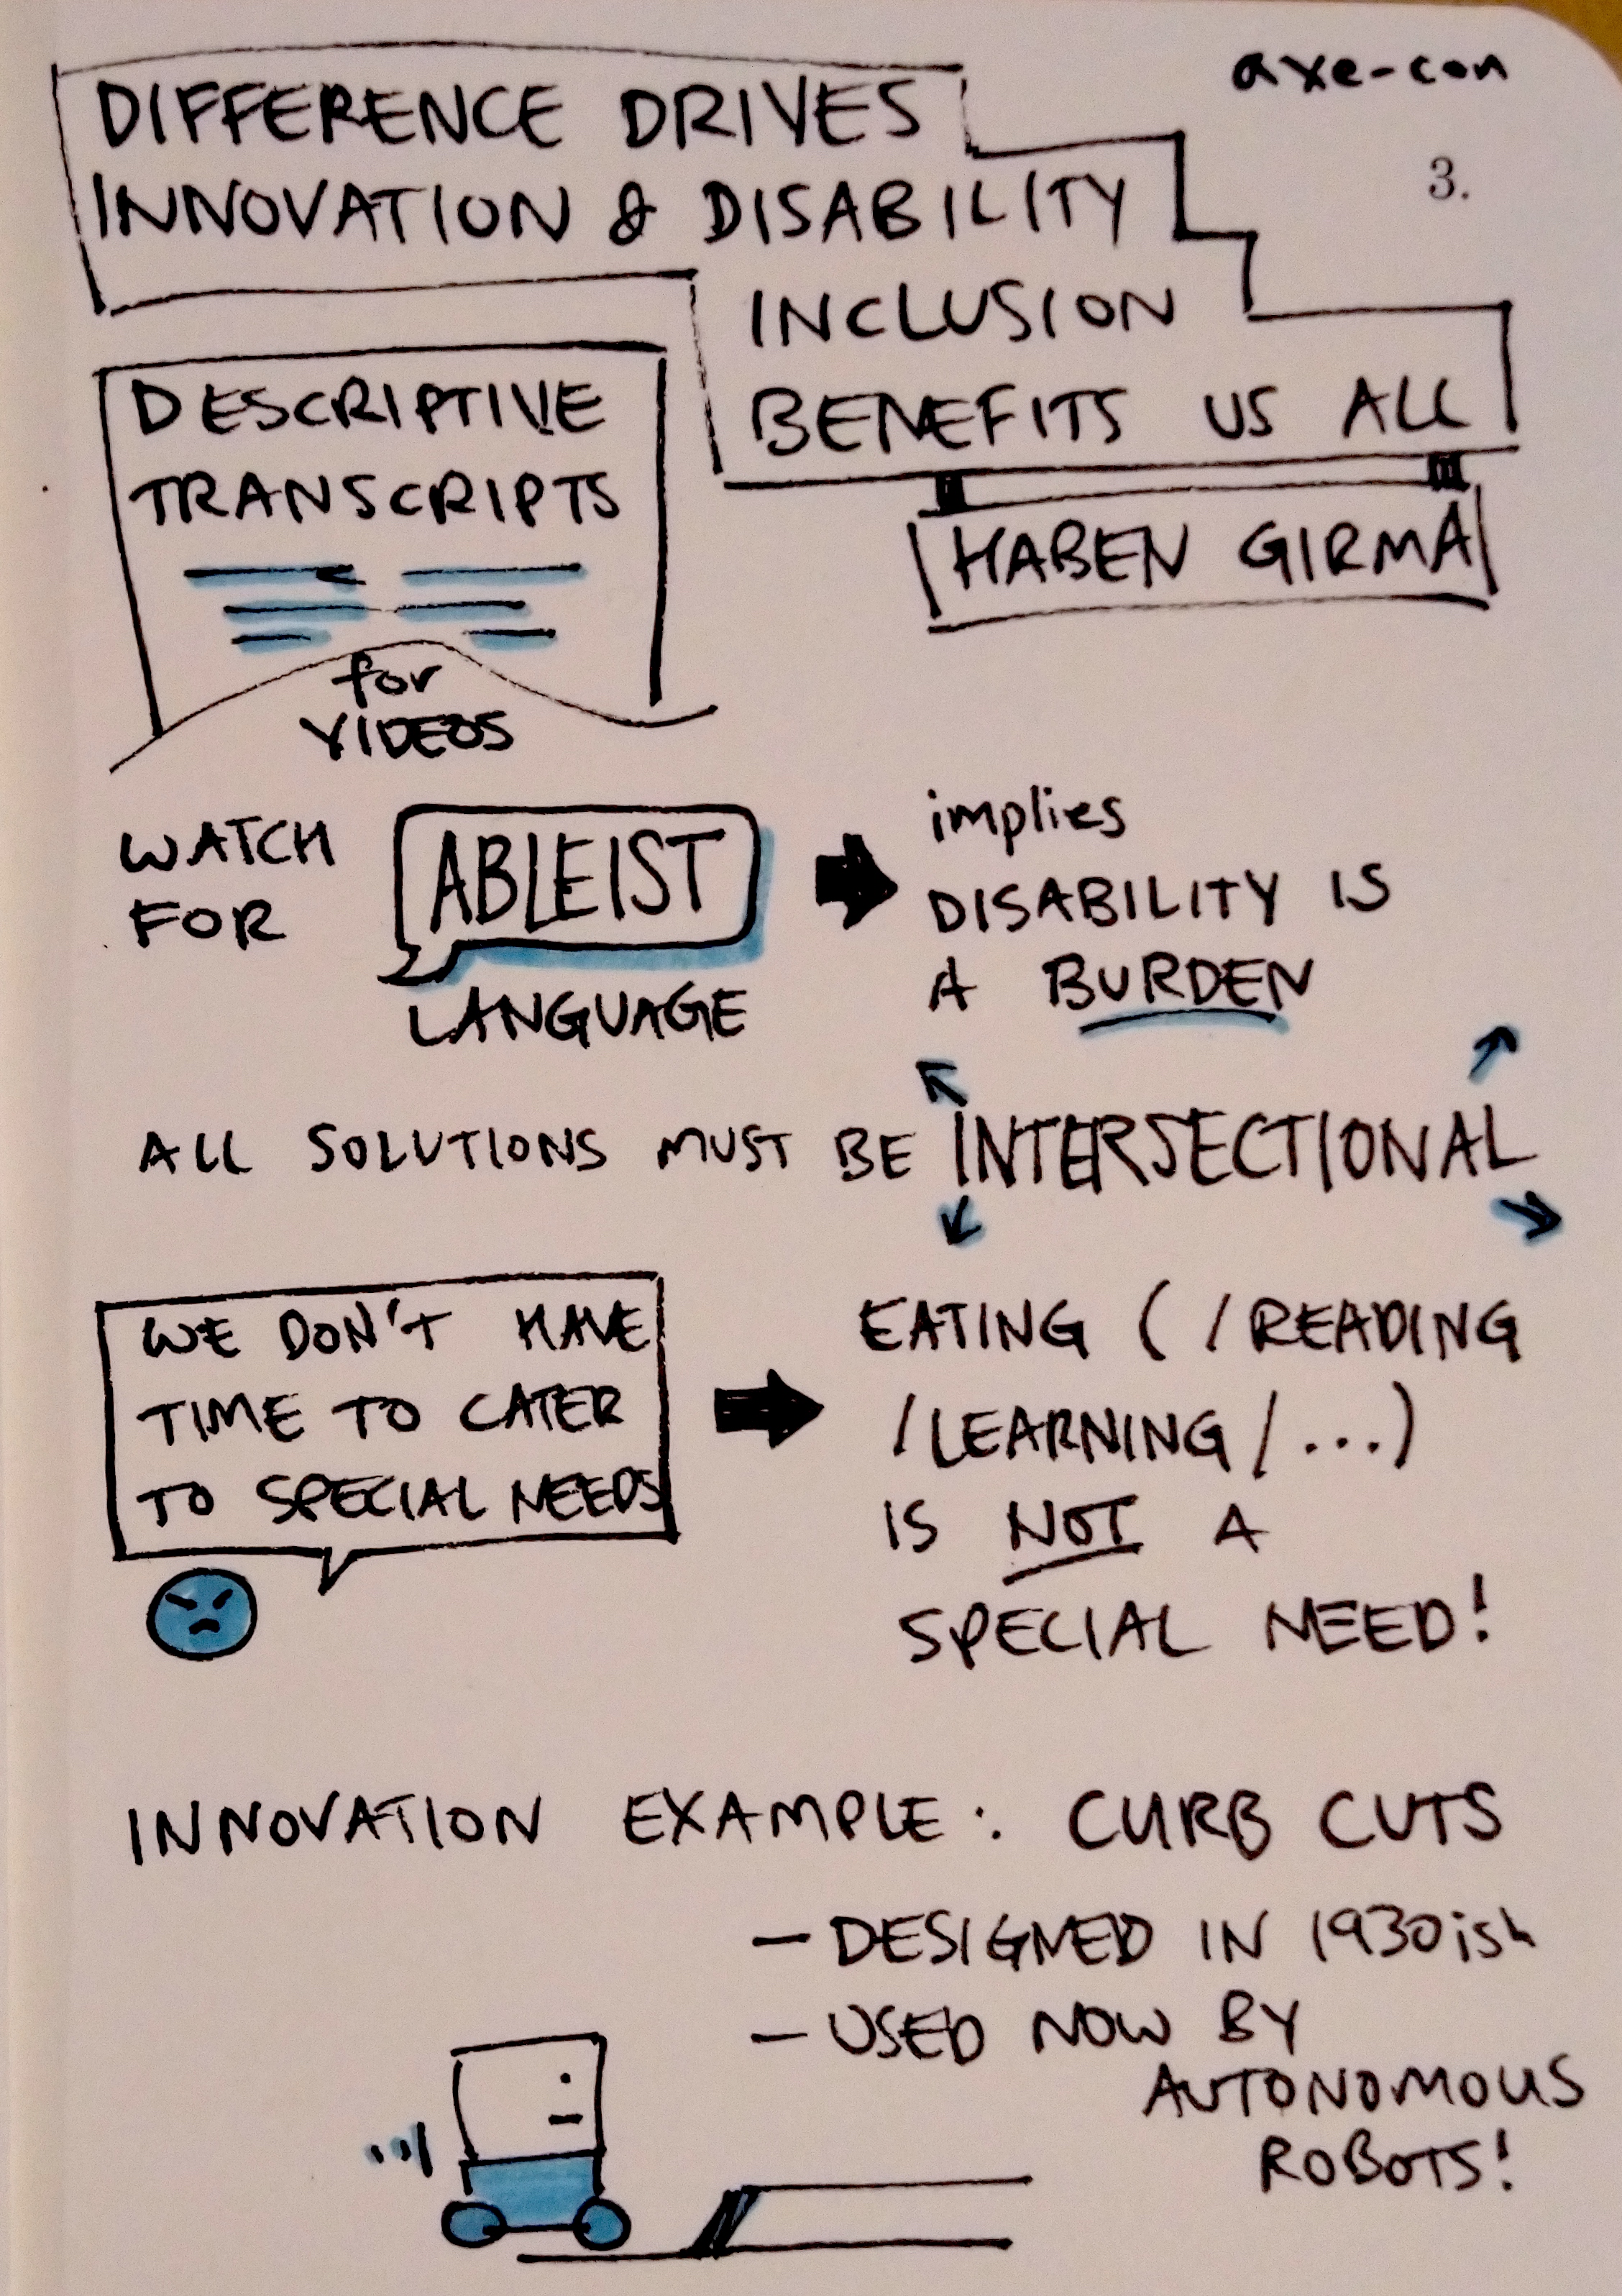 axe-con
3.
DIFFERENCE DRIVES
INNOVATION & DISABILITY
INCLUSION
BENEFITS US ALL
HABEN GIRMA
DESCRIPTIVE
TRANSCRIPTS
for
VIDEOS
WATCH
FOR
ABLEIST
LANGUAGE
implies
DISABILITY IS
A BURDEN
ALL SOLUTIONS MUST BE INTERSECTIONAL
WE DON'T HAVE
TIME TO CATER
TO SPECIAL NEEDS
EATING (/READING
/LEARNING/...)
IS NOT A
SPECIAL NEED!
INNOVATION EXAMPLE: CURB CUTS
- DESIGNED IN 1930ish
- USED NOW BY
AUTONOMOUS
ROBOTS!